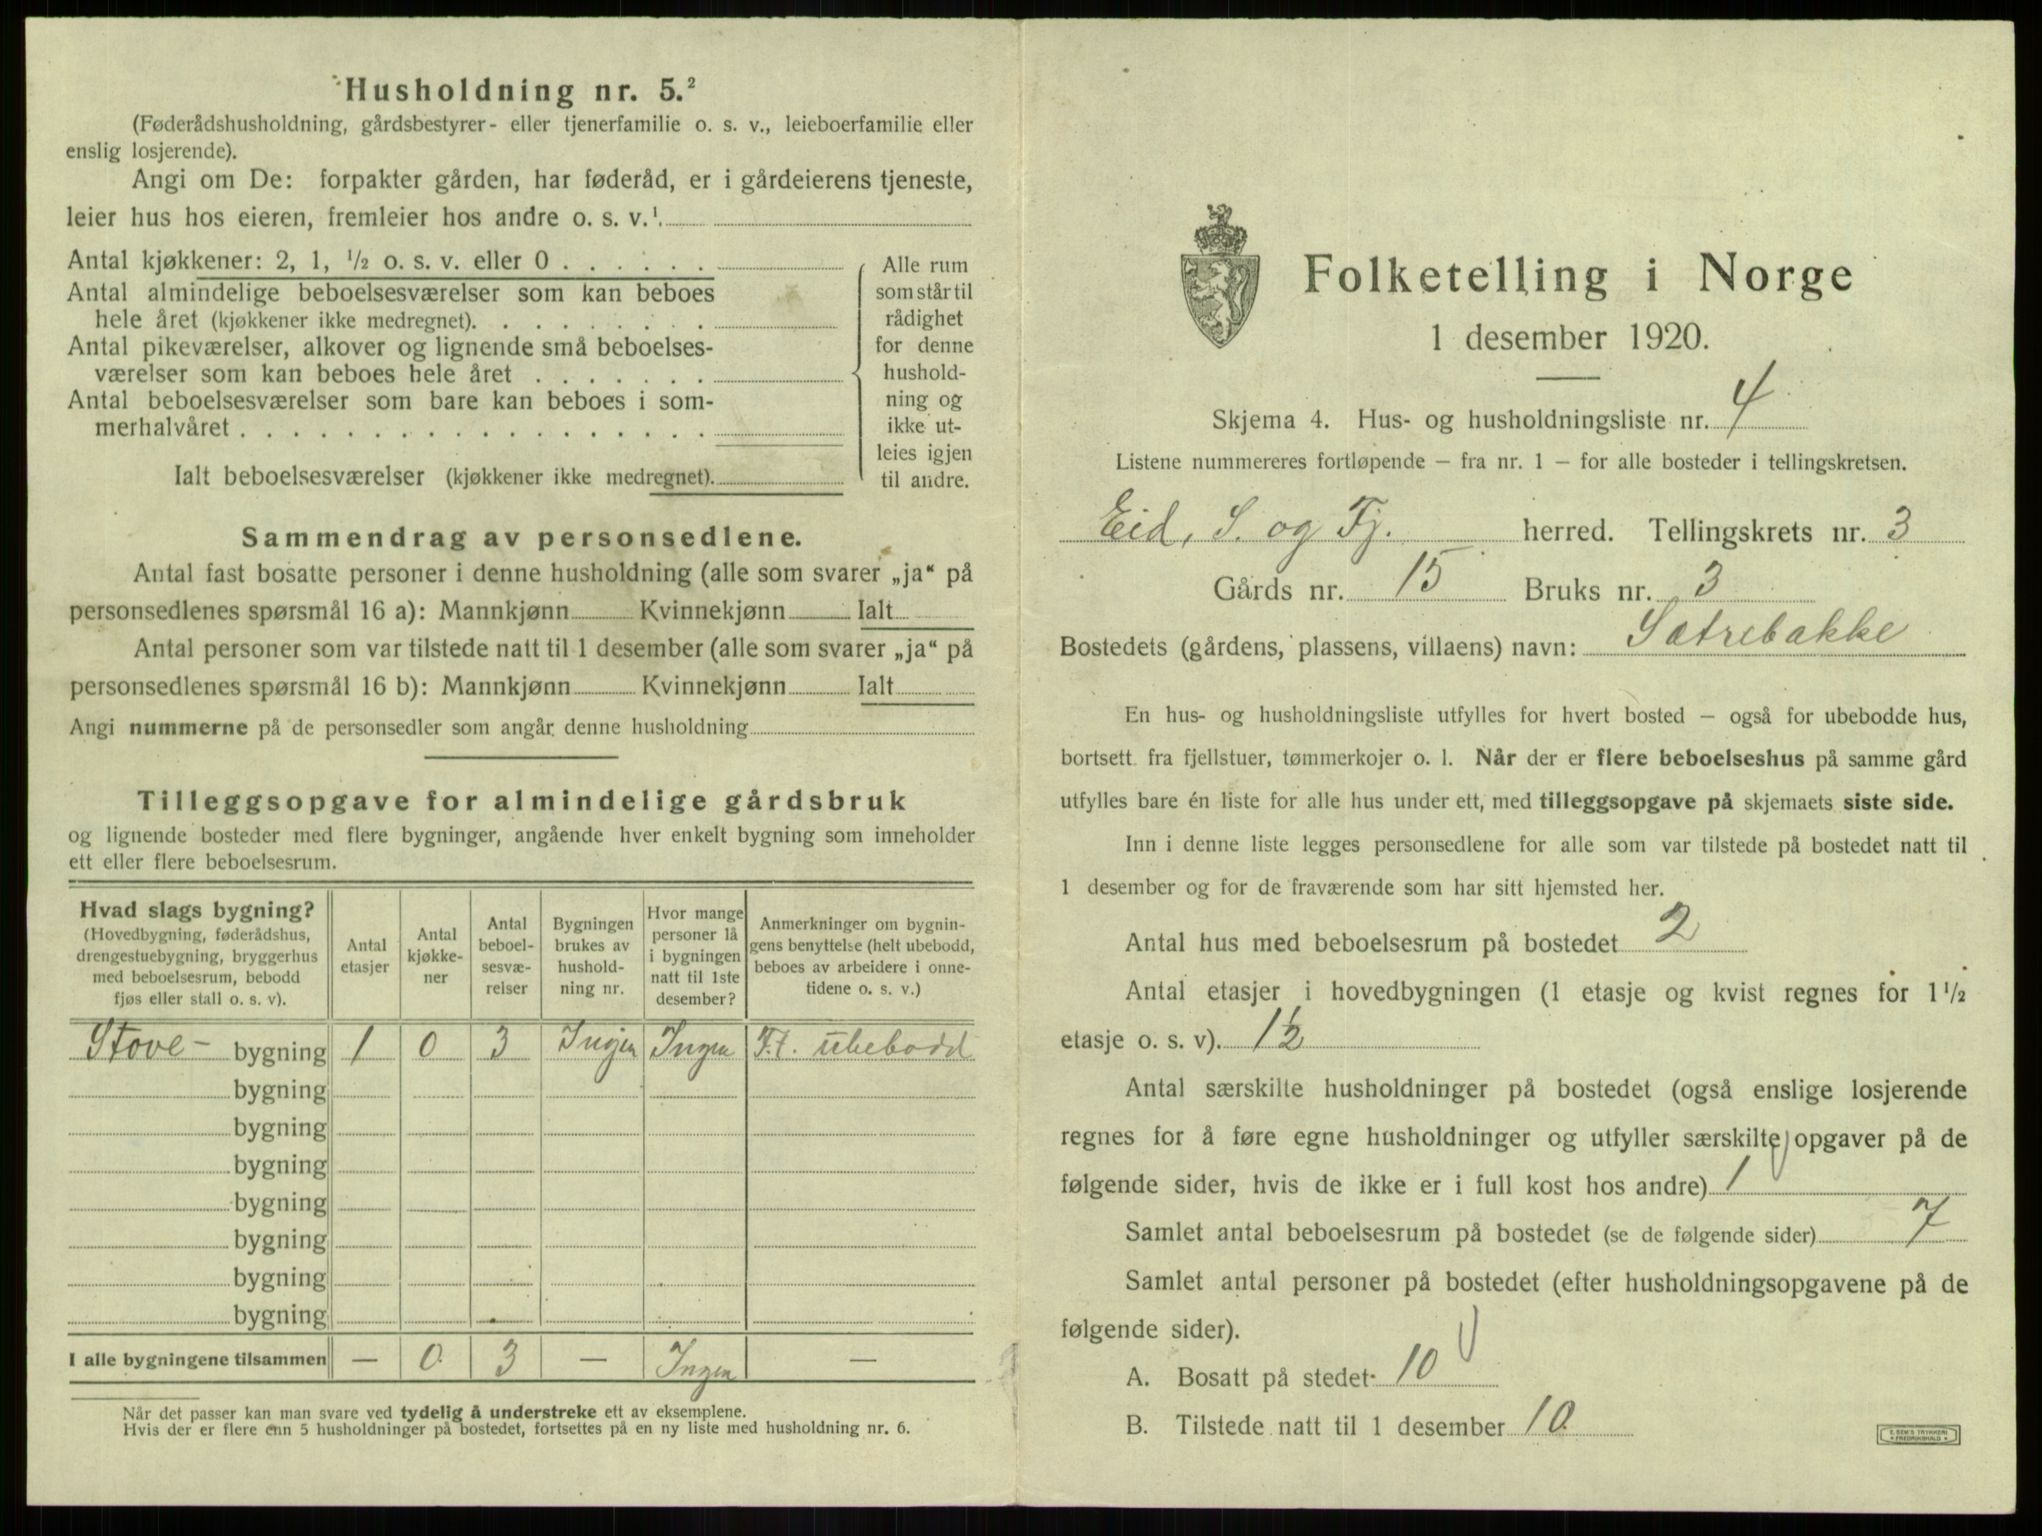 Husholdning nr. 5.²
(Føderådshusholdning, gårdsbestyrer- eller tjenerfamilie o. s. v., leieboerfamilie eller
enslig losjerende).
Angi om De: forpakter gården, har føderåd, er i gårdeierens tjeneste,
leier hus hos eieren, fremleier hos andre o. s. v.¹
Antal kjøkkener: 2, 1, ½ o. s. v. eller 0
Antal almindelige beboelsesværelser som kan beboes
hele året (kjøkkener ikke medregnet).
Antal pikeværelser, alkover og lignende små beboelses-
værelser som kan beboes hele året
Antal beboelsesværelser som bare kan beboes i som-
merhalvåret
Ialt beboelsesværelser (kjøkkener ikke medregnet).
Alle rum
som står til
rådighet
for denne
hushold-
ning og
ikke ut-
leies igjen
til andre.
Sammendrag av personsedlene.
Antal fast bosatte personer i denne husholdning (alle som svarer „ja“ på
personsedlenes spørsmål 16 a): Mannkjønn Kvinnekjønn Ialt
Antal personer som var tilstede natt til 1 desember (alle som svarer „ja“ på
personsedlenes spørsmål 16 b): Mannkjønn Kvinnekjønn Ialt
Angi nummerne på de personsedler som angår denne husholdning
Tilleggsopgave for almindelige gårdsbruk
og lignende bosteder med flere bygninger, angående hver enkelt bygning som inneholder
ett eller flere beboelsesrum.
Hvad slags bygning?
(Hovedbygning, føderådshus,
drengestuebygning, bryggerhus
med beboelsesrum, bebodd
fjøs eller stall o. s. v).
Antal
etasjer
Antal
kjøkke-
ner
Antal
beboel-
sesvæ-
relser
Bygningen
brukes av
hushold-
ning nr.
Hvor mange
personer lå
i bygningen
natt til 1ste
desember?
Anmerkninger om bygnin-
gens benyttelse (helt ubebodd,
beboes av arbeidere i onne-
tidene o. s. v.)
Stove- bygning 1 0 3 Ingen Ingen F.t. ubebodd
bygning
bygning
bygning
bygning
bygning
bygning
bygning
I alle bygningene tilsammen — 0 3 — Ingen —
Når det passer kan man svare ved tydelig å understreke ett av eksemplene.
Hvis der er flere enn 5 husholdninger på bostedet, fortsettes på en ny liste med husholdning nr. 6.
Folketelling i Norge
1 desember 1920.
Skjema 4. Hus- og husholdningsliste nr. 4
Listene nummereres fortløpende — fra nr. 1 — for alle bosteder i tellingskretsen.
Eid, S. og Fj. herred. Tellingskrets nr. 3
Gårds nr. 15 Bruks nr. 3
Bostedets (gårdens, plassens, villaens) navn: Sætrebakke
En hus- og husholdningsliste utfylles for hvert bosted — også for ubebodde hus,
bortsett fra fjellstuer, tømmerkojer o. l. Når der er flere beboelseshus på samme gård
utfylles bare én liste for alle hus under ett, med tilleggsopgave på skjemaets siste side.
Inn i denne liste legges personsedlene for alle som var tilstede på bostedet natt til
1 desember og for de fraværende som har sitt hjemsted her.
Antal hus med beboelsesrum på bostedet 2
Antal etasjer i hovedbygningen (1 etasje og kvist regnes for 1½
etasje o. s. v). 1½
Antal særskilte husholdninger på bostedet (også enslige losjerende
regnes for å føre egne husholdninger og utfyller særskilte opgaver på de
følgende sider, hvis de ikke er i full kost hos andre) 1
Samlet antal beboelsesrum på bostedet (se de følgende sider) 7
Samlet antal personer på bostedet (efter husholdningsopgavene på de
følgende sider).
A. Bosatt på stedet 10
B. Tilstede natt til 1 desember 10
E. SEM'S TRYKKERI
FREDRIKSHALD